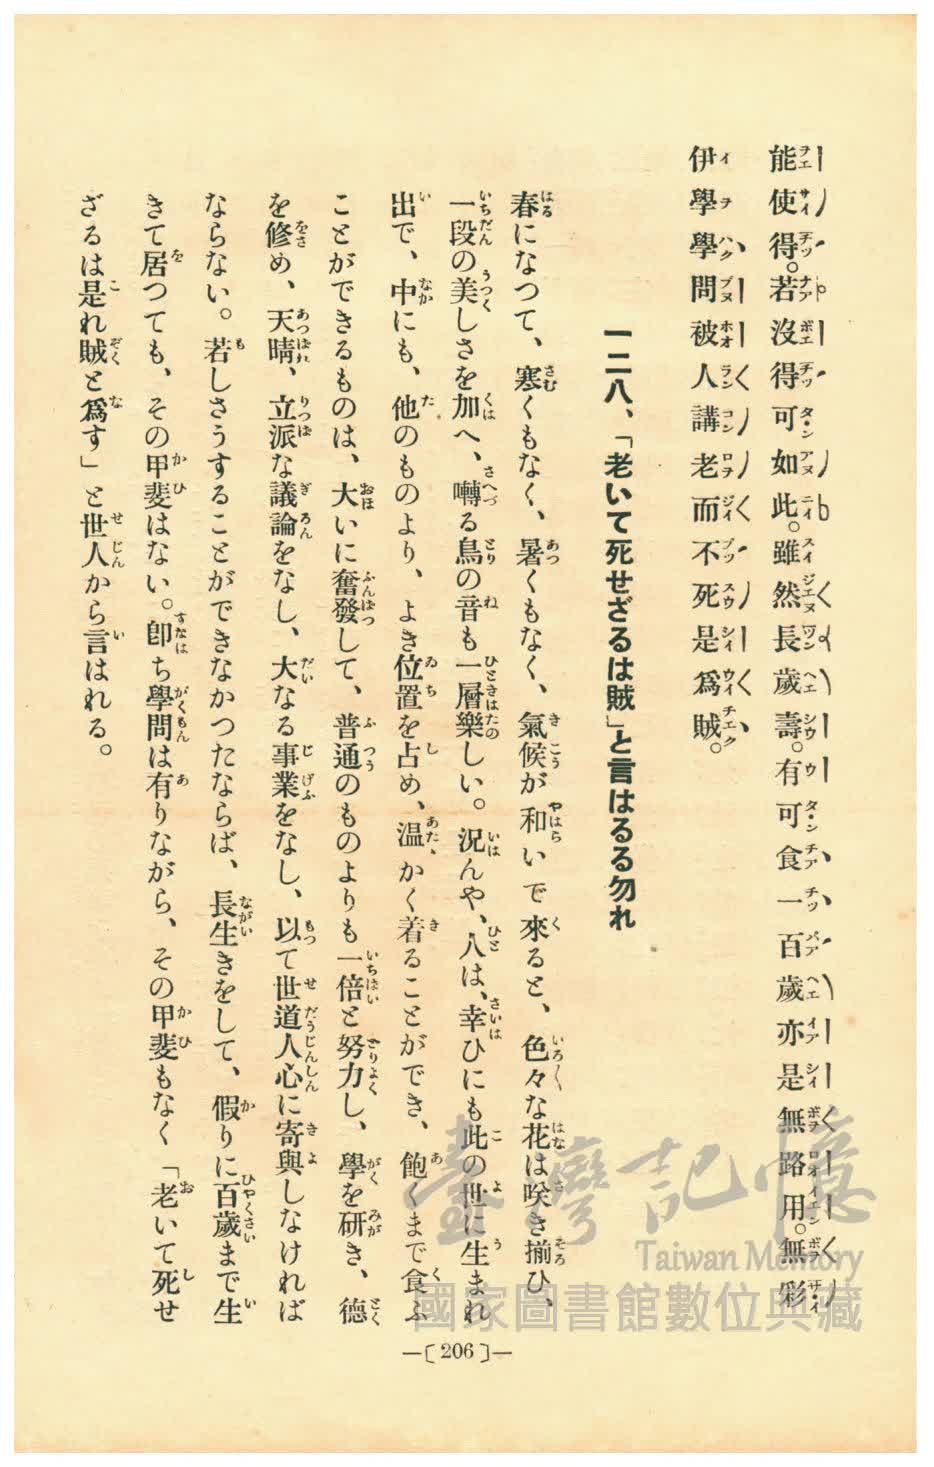 能使得。若沒得可如此。雖然長歲壽。有可食一百歲亦是無路用。無彩
伊學學問被人講老而不死是爲賊。
一二八、「老いて死せざるは賊」と言はるる勿れ
春になつて、寒くもなく、暑くもなく、氣候が和いで來ると、色々な花は咲き揃ひ、
一段の美しさを加へ、囀る鳥の音も一層樂しい。況んや、人は、幸ひにも此の世に生まれ
出で、中にも、他のものより、よき位置を占め、温かく着ることができ、飽くまで食ふ
ことができるものは、大いに奮發して、普通のものよりも一倍と努力し、學を研き、德
を修め、天晴、立派な議論をなし、大なる事業をなし、以て世道人心に寄與しなければ
ならない。若しさうすることができなかつたならば、長生きをして、假りに百歲まで生
きて居つても、その甲斐はない。卽ち學問は有りながら、その甲斐もなく「老いて死せ
ざるは是れ賊と爲す」と世人から言はれる。
—〔206〕—
臺灣記憶
Taiwan Memory
國家圖書館數位典藏